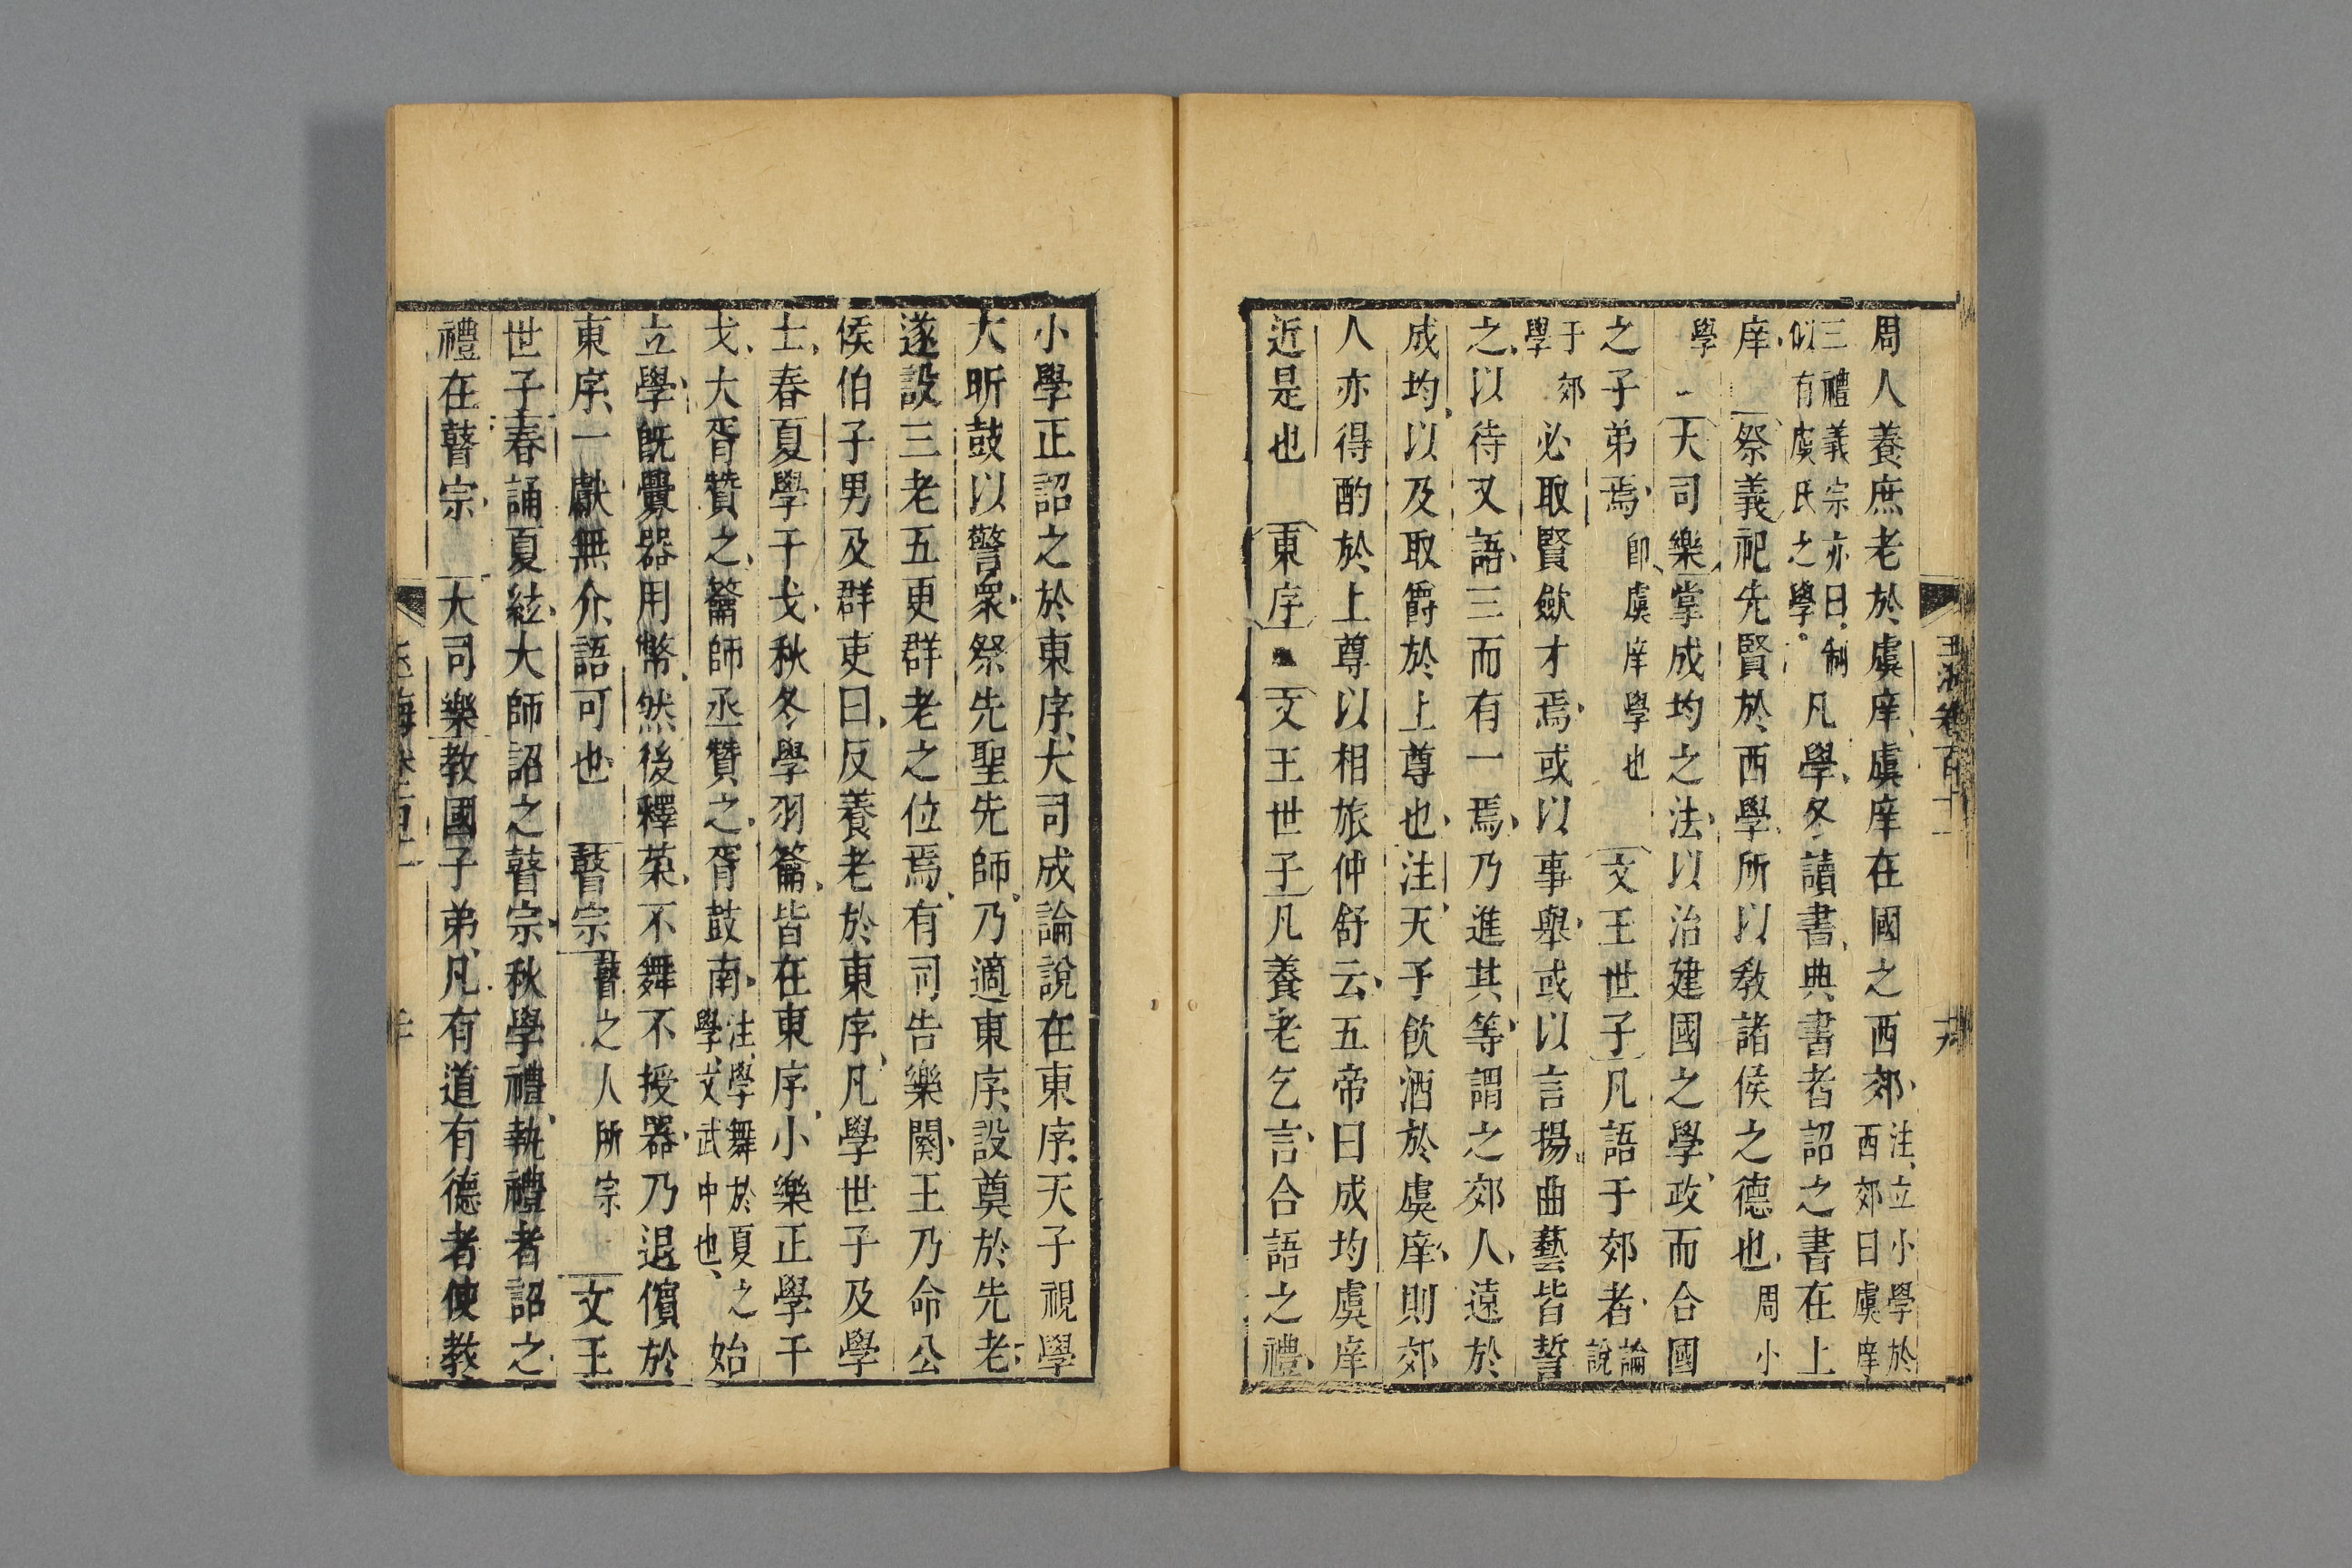 玉海卷百十一
周人養庶老於虞庠虞庠在國之西郊注立小學於西郊曰虞庠
三禮義宗亦曰制似有虞氏之學凡學冬讀書典書者詔之書在上
庠祭義祀先賢於西學所以教諸侯之德也周小
學大司樂掌成均之法以治建國之學政而合國
之子弟焉即虞庠學也文王世子凡語于郊者論說
于郊學必取賢斂才焉或以事舉或以言揚曲藝皆誓
之以待又語三而有一焉乃進其等謂之郊人遠於
成均以及取爵於上尊也注天子飲酒於虞庠則郊
人亦得酌於上尊以相旅仲舒云五帝曰成均虞庠
近是也東序文王世子凡養老乞言合語之禮
小學正詔之於東序大司成論說在東序天子視學
大昕鼓以警衆祭先聖先師乃適東序設奠於先老
遂設三老五更群老之位焉有司告樂闋王乃命公
侯伯子男及群吏曰反養老於東序凡學世子及學
士春夏學干戈秋冬學羽籥皆在東序小樂正學干
戈大胥贊之籥師丞贊之胥鼓南注學舞於夏之學文武中也始
立學既釁器用幣然後釋菜不舞不授器乃退儐於
東序一獻無介語可也瞽宗瞽之人所宗文王
世子春誦夏絃大師詔之瞽宗秋學禮執禮者詔之
禮在瞽宗大司樂教國子弟凡有道有德者使教